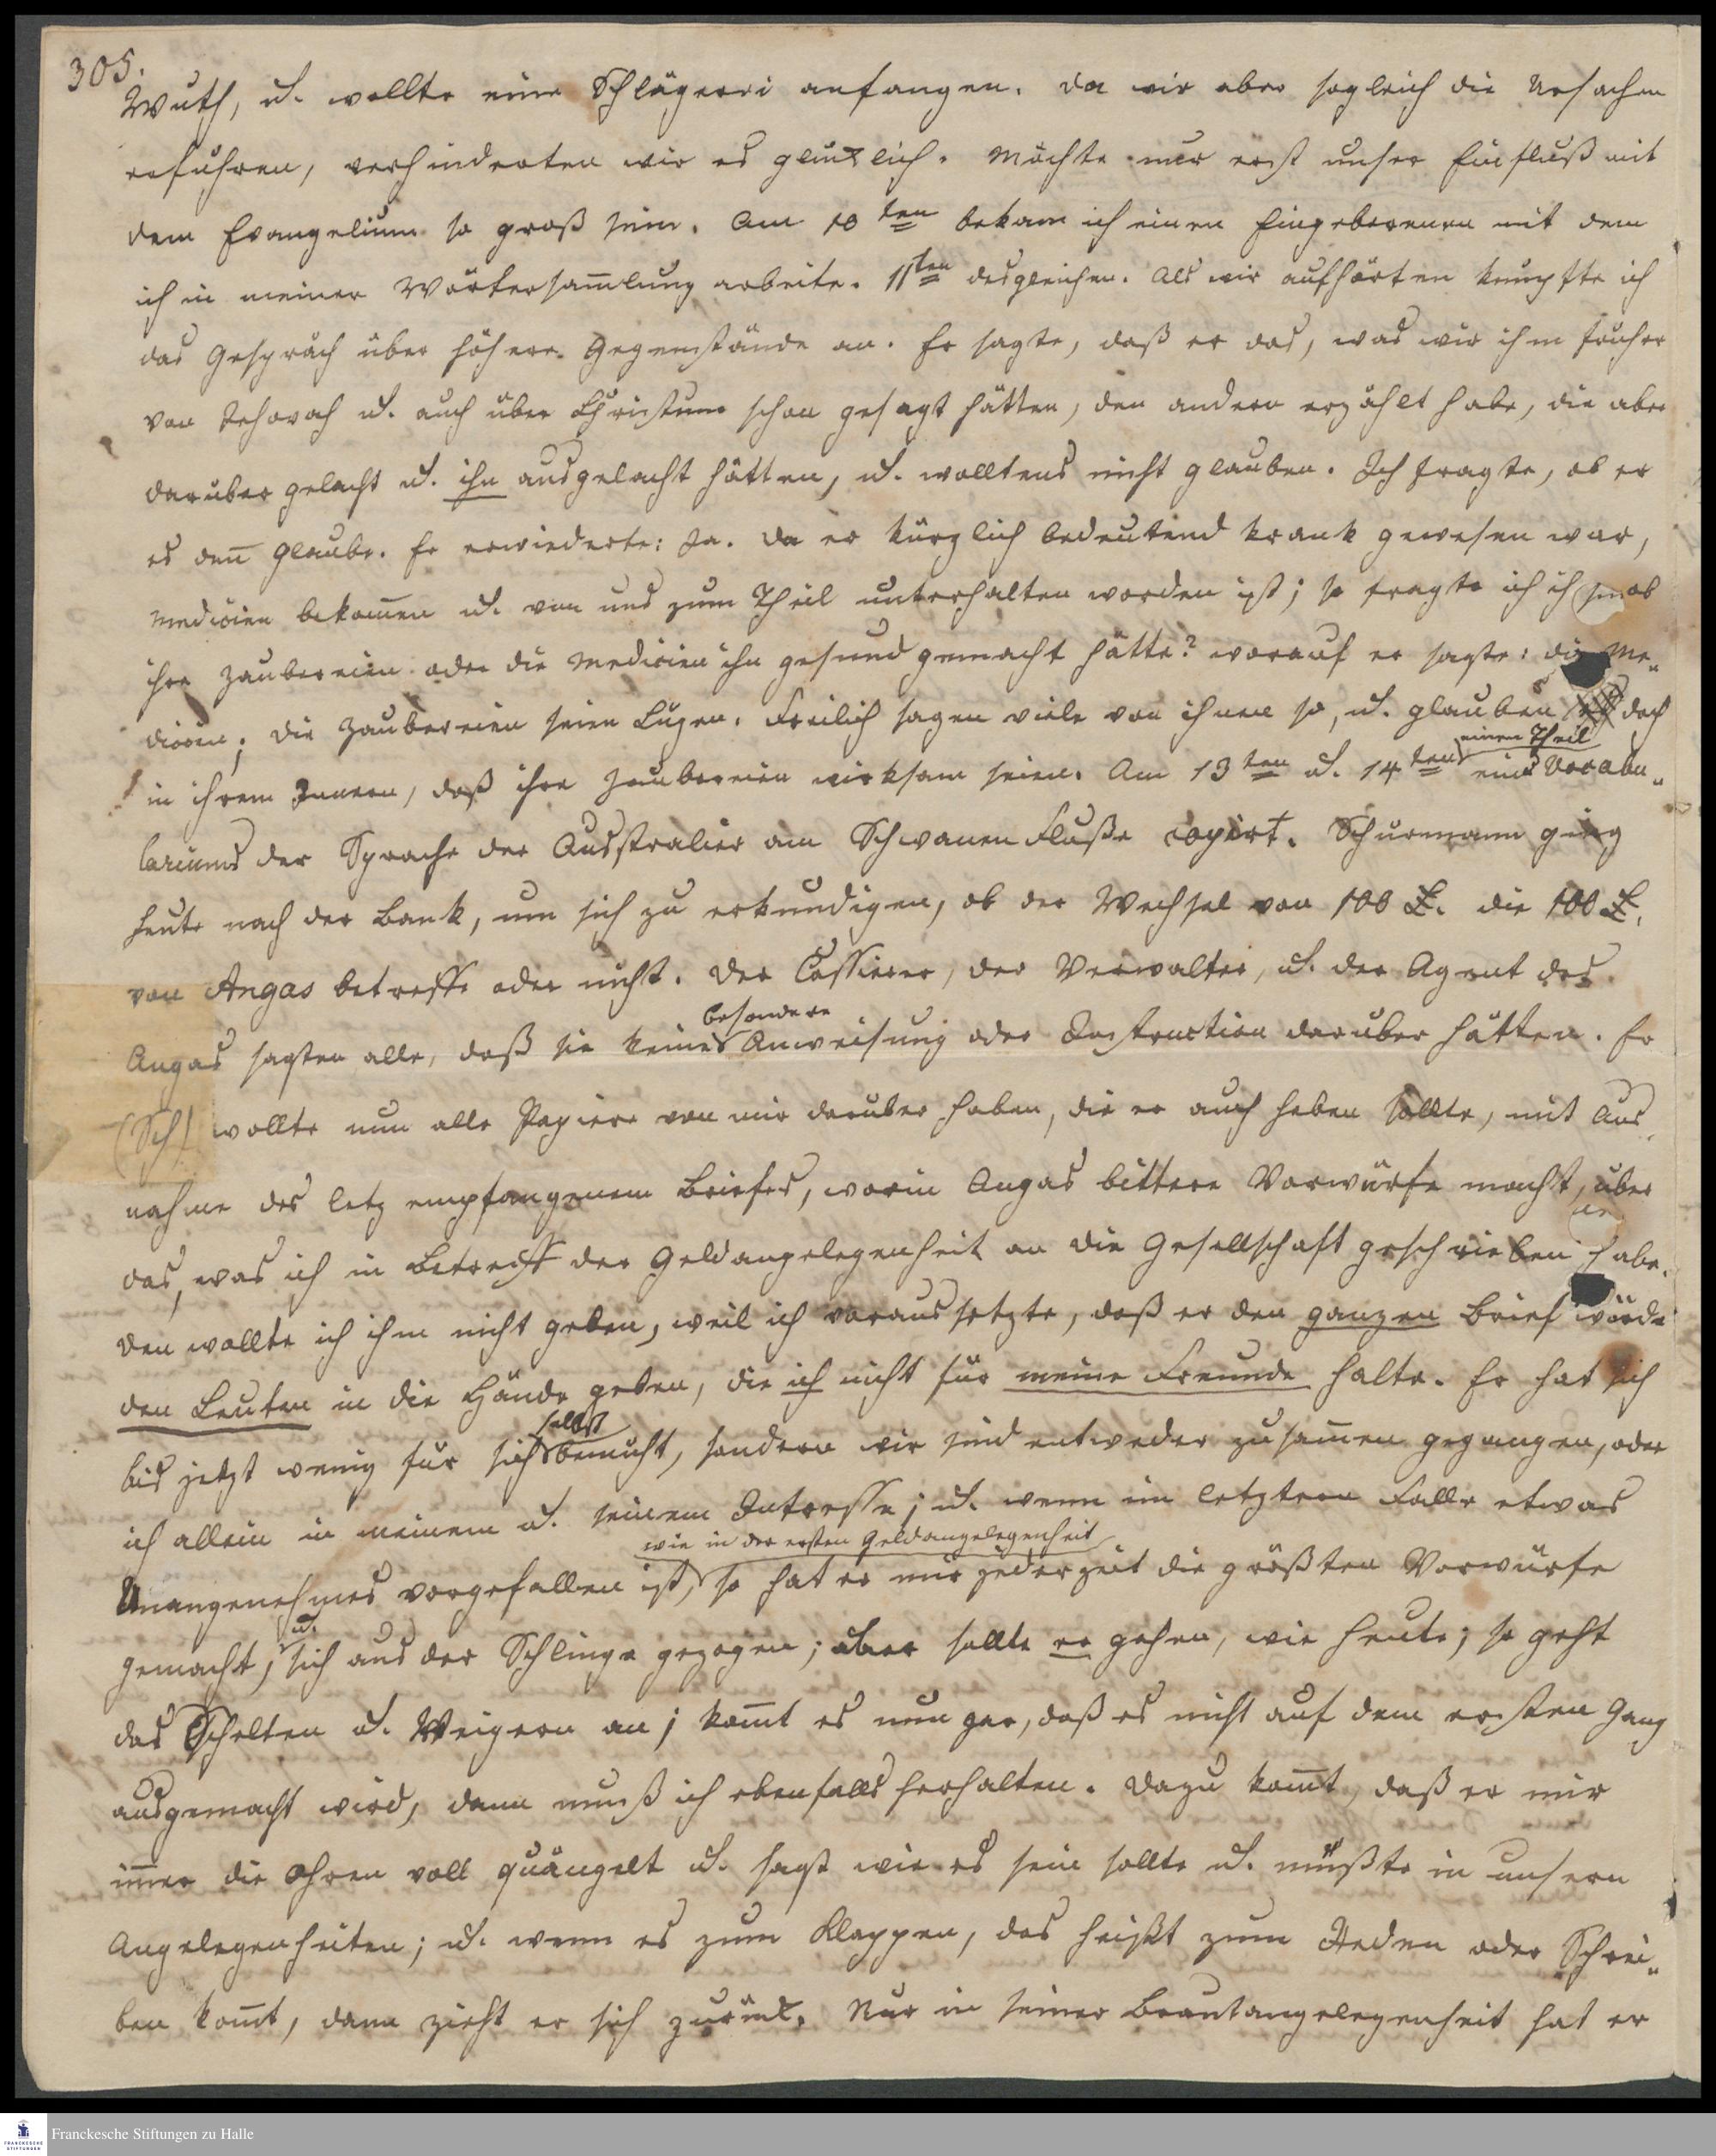 305.
Wuth, u. wollte eine Schlägerei anfangen. Da wir aber sogleich die Ursachen
erfuhren, verhinderten wir es glücklich. Möchte nur erst unser Einfluß mit
dem Evangelium so groß sein. Am 10ten bekam ich einen Eingeborenen mit dem
ich in meiner Wörtersam̅lung arbeite. 11ten desgleichen. Als wir aufhörten knüpfte ich
das Gespräch über höhere Gegenstände an. Er sagte, daß er das, was wir ihm früher
von Jehovah u. auch über Christum schon gesagt hätten, den andern erzählt habe, die aber
darüber gelacht u. ihn ausgelacht hätten, u. wolltens nicht glauben. Ich fragte, ob er
es den̅ glaube. Er erwiederte: Ja. Da er kürzlich bedeutend krank gewesen war,
Medicien bekom̅en u. von uns zum Theil unterhalten worden ist; so fragte ich ihn ob
ihre Zaubereien oder die Medicien ihn gesund gemacht hätte? worauf er sagte: die Me„
dicien; die Zaubereien seien Lügen. Freilich sagen viele von ihnen so, u. glauben doch
in ihrem Innern, daß ihre Zaubereien wirksam seien. Am 13ten u. 14ten einen Theil eines Vocabu„
lariums der Sprache der Australier am Schwanen Fluße copirt. Schürmann ging
heute nach der Bank, um sich zu erkundigen, ob der Wechsel von 100 £. die 100 £.
von Angas betreffe oder nicht. Der Cassierer, der Verwalter, u. der Agent des
Angas sagten alle, daß sie keine besondere Anweisung oder Instruction darüber hätten. Er
(Sch) wollte nun alle Papiere von mir darüber haben, die er auch haben sollte, mit Aus„
nahme des letz empfangenen Briefes, worin Angas bittere Vorwürfe macht, über
das, was ich in Betreff der Geldangelegenheit an die Gesellschaft geschrieben habe.
Den wollte ich ihm nicht geben, weil ich voraussetzte, daß er den ganzen Brief würde
den Leuten in die Hände geben, die ich nicht für meine Freunde halte. Er hat sich
bis jetzt wenig für sich selbst bemüht, sondern wir sind entweder zusam̅en gegangen, oder
ich allein in meinem u. seinem Intresse; u. wenn im letztern Falle etwas
Unangenehmes vorgefallen ist, wie in der ersten Geldangelegenheit so hat er mir jederzeit die größten Vorwürfe
gemacht, u. sich aus der Schlinge gezogen; aber sollte er gehen, wie heute; so geht
das Schelten u. Weigern an; kom̅t es nun gar, daß es nicht auf dem ersten Gang
ausgemacht wird, dann muß ich ebenfalls herhalten. Dazu kom̅t, daß er mir
im̅er die Ohren voll quängelt u. sagt wie es sein sollte u. müßte in unsern
Angelegenheiten; u. wenn es zum Klappen, das heißt zum Reden oder Schrei„
ben kom̅t, dann zieht er sich zurück. Nur in seiner Brautangelegenheit hat er
Franckesche Stiftungen zu Halle